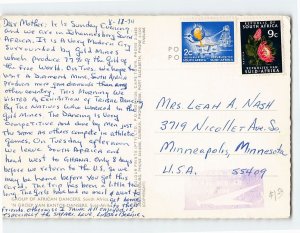 Dear Mother: It is Sunday Evening 8-18-70
and we are in Johannesburg South
Africa. It is a very Modern City
Surrounded by Gold Mines
which produce 73% of the Gold of
the Free World. On Tues. we hope to
visit a Diamond Mine. South Africa
produces more gem diamonds than any
other country. This Morning we
visited A Exhibition of Tribal Dancing
By the Natives who worked in the
Gold Mines. The Dancing is Very
Competitive and done by often just
the same as others compete in athletic
games. On Tuesday afternoon
we leave South Africa and
head west to Ghana. Only 8 days
before we return to the U.S. so we
may be home before you get this
card. The trip has been a little tear
ing. The girls have had
GROUP OF AFRICAN DANCERS, South Africa
'N GROEP VAN BANTOE DANSERS, Suid-Afrika
friends otherwise I think all enjoyed
especially the safari. Love,
2c
SOUTH AFRICA SUID-AFRIKA
9c
REPUBLIC OF SOUTH AFRICA
REPUBLIEK VAN SUID-AFRIKA
PO
PO
Mrs. Leah A. Nash
3719 Nicollet Ave. So.
Minneapolis, Minnesota
U.S.A. 55409